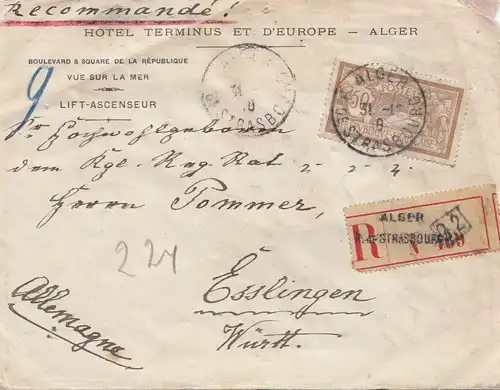 Recommandé!
HOTEL TERMINUS ET D'EUROPE — ALGER
BOULEVARD & SQUARE DE LA RÉPUBLIQUE
VUE SUR LA MER
LIFT-ASCENSEUR
9
ALGER
STRASBO
50
POSTES
ALGER
R. DE STRASBOURG
Sr. Hochwohlgeboren
dem Kgl. Reg. Rat
Herrn Pommer,
ALGER
R. de STRASBOURG
R
224
Esslingen
Württ.
Allemagne